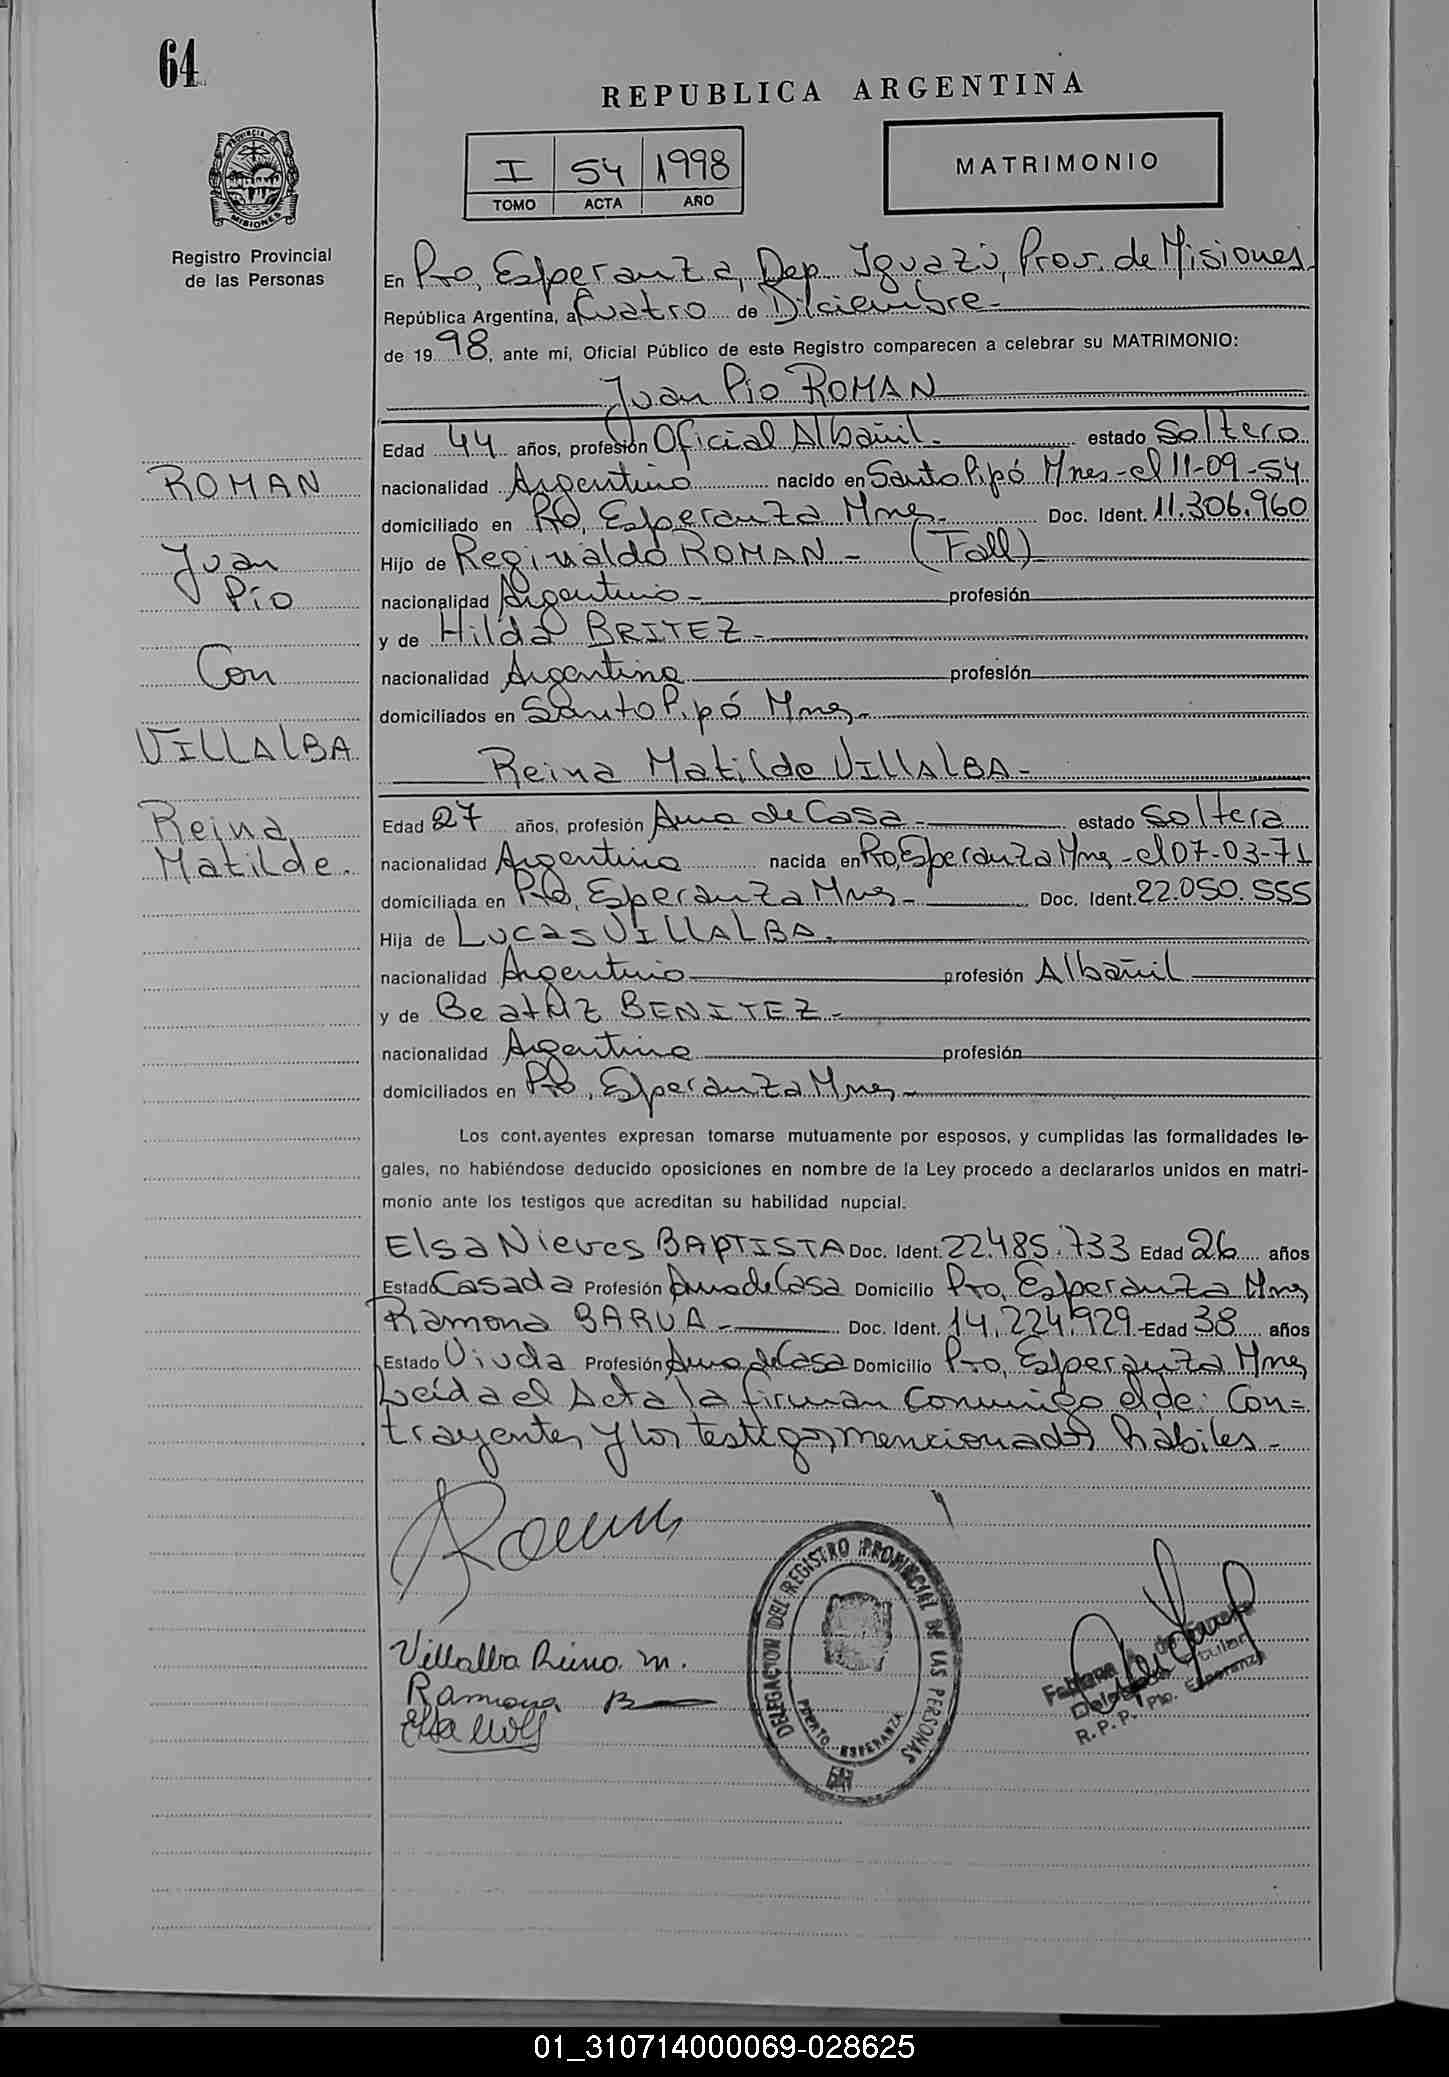 64
REPUBLICA ARGENTINA
I 54 1998
TOMO ACTA AÑO
MATRIMONIO
PROVINCIA DE
MISIONES
Registro Provincial
de las Personas
En Pto, Esperanza, Dep. Iguazú, Prov. de Misiones.
República Argentina, a Cuatro de Diciembre.-
de 1998, ante mí, Oficial Público de este Registro comparecen a celebrar su MATRIMONIO:
Juan Pio ROMAN
Edad 44 años, profesión Oficial Albañil.- estado Soltero
nacionalidad Argentino nacido en Santo Pipó Mnes-el 11-09-54
domiciliado en Pto, Esperanza Mnes.- Doc. Ident. 11.306.960
Hijo de Reginaldo ROMAN - (Fall)
nacionalidad Argentino- profesión
y de Hilda BRITEZ-
nacionalidad Argentina profesión
domiciliados en Santo Pipó Mnes-
Reina Matilde VIllAlBA-
Edad 27 años, profesión Ama de Casa- estado Soltera
nacionalidad Argentina nacida en Pto, Esperanza Mnes-el 07-03-71
domiciliada en Pto, Esperanza Mnes- Doc. Ident. 22.050.555
Hija de Lucas VIllAlBA.
nacionalidad Argentino profesión Albañil
y de Beatriz BENITEZ-
nacionalidad Argentina profesión
domiciliados en Pto, Esperanza Mnes-
ROMAN
Juan
Pío
Con
VIllAlBA
Reina
Matilde.
Los cont.ayentes expresan tomarse mutuamente por esposos, y cumplidas las formalidades le-
gales, no habiéndose deducido oposiciones en nombre de la Ley procedo a declararlos unidos en matri-
monio ante los testigos que acreditan su habilidad nupcial.
Elsa Nieves BAPTISTA Doc. Ident. 22.485.733 Edad 26 años
Estado Casada Profesión Ama de Casa Domicilio Pto, Esperanza Mnes
Ramona BARUA- Doc. Ident. 14.224.929- Edad 38 años
Estado Viuda Profesión Ama de Casa Domicilio Pto, Esperanza Mnes
Leída el Acta la firman conmigo el de: Con=
trayentes y los testigos mencionados habiles-
Roman
Villalba Reina. M.
Ramona B
Elsa
DELEGACION DEL REGISTRO PROVINCIAL DE LAS PERSONAS
PUERTO ESPERANZA
R.P.P. Pto. Esperanza
01_310714000069-028625